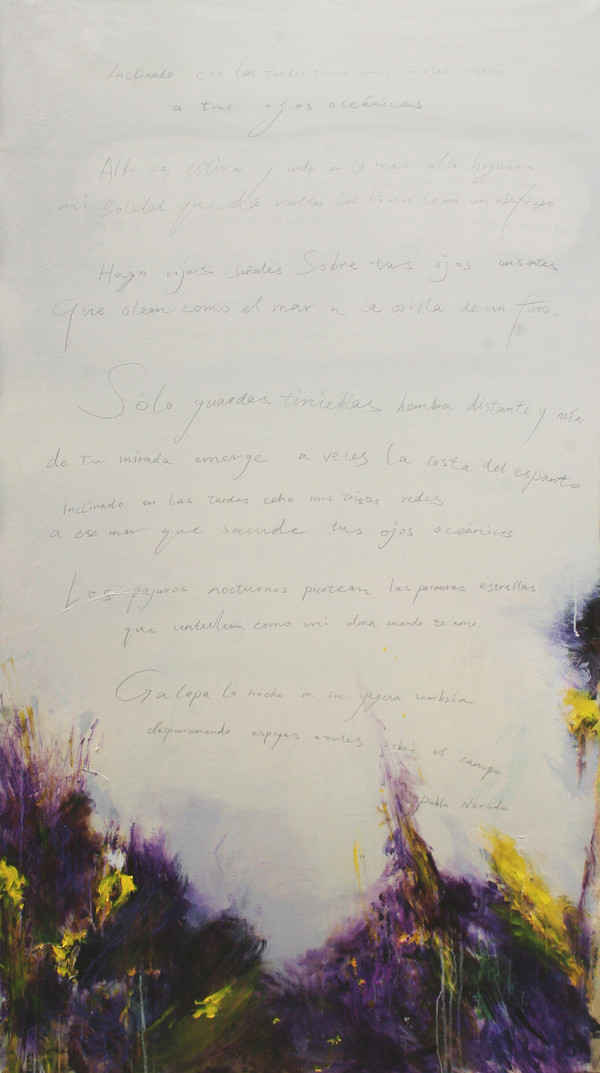 Inclinado en las tardes tiro mis
a tus ojos oceánicos
Alli se estira y arde en la más alta hoguera
mi Soledad que da vueltas los brazos como un náufrago
Hago rojas señales Sobre tus ojos ausentes
Que olean como el mar a la orilla de un faro.
Sólo guardas tinieblas hembra distante y mía
de tu mirada emerge a veces la costa del espanto
Inclinado en las tardes echo mis tristes redes
a ese mar que sacude tus ojos oceánicos
Los pajaros nocturnos picotean las primeras estrellas
que centellean como mi alma cuando te amo.
Galopa la noche en su yegua sombría
desparramando espigas azules sobre el campo
Pablo Neruda